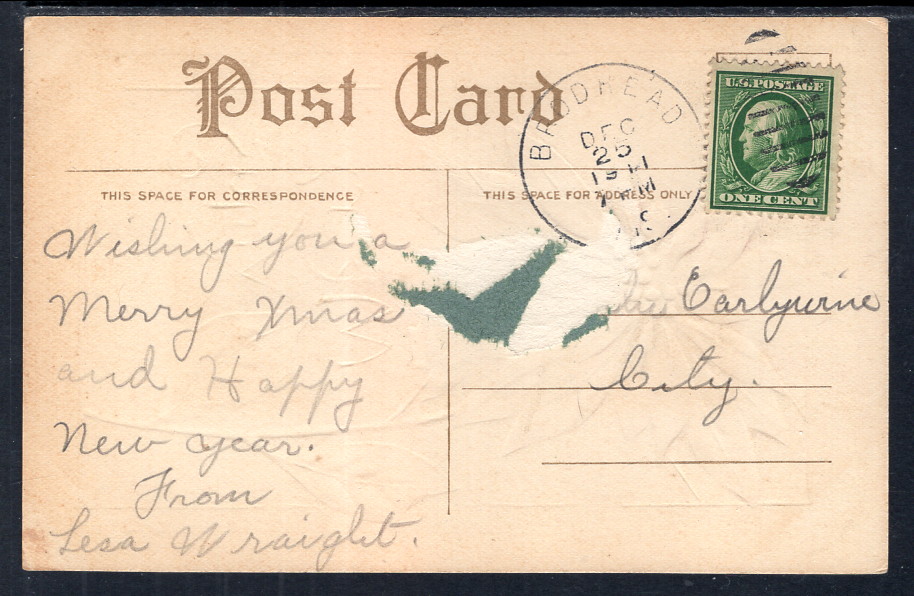 Post Card
BRODHEAD
DEC
25
1911
M
U.S. POSTAGE
ONE CENT
THIS SPACE FOR CORRESPONDENCE
THIS SPACE FOR ADDRESS ONLY
Wishing you a
Merry Xmas
and Happy
New Year.
From
Lesa Wraight.
Earlywine
City.